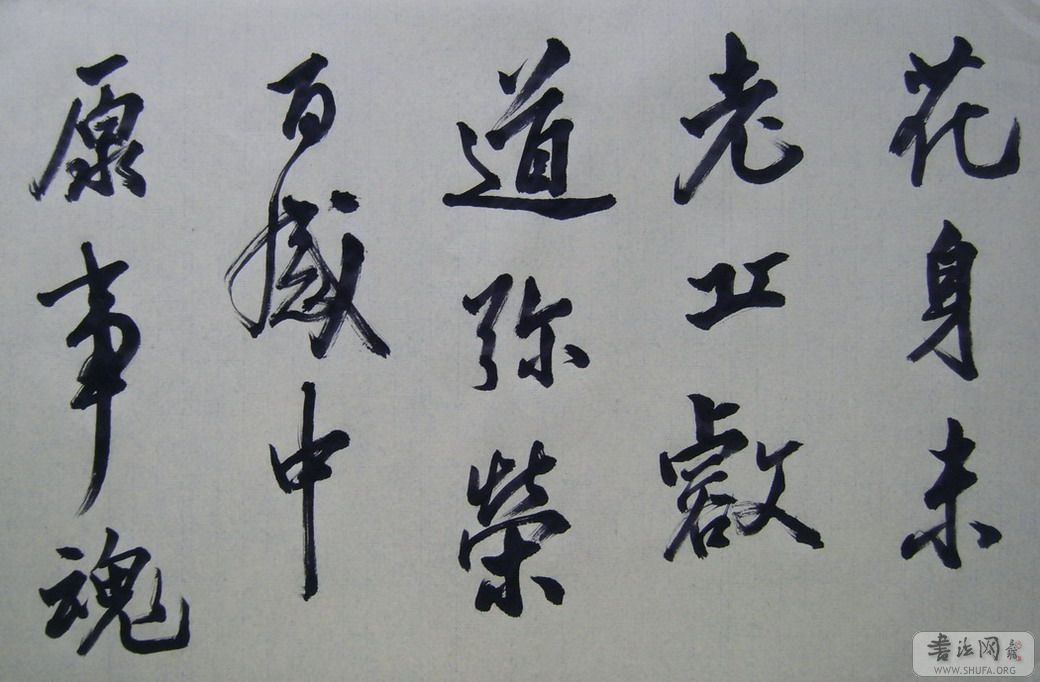 花身未
老工叡
道弥榮
百感中
原事魂
書法网
WWW.SHUFA.ORG